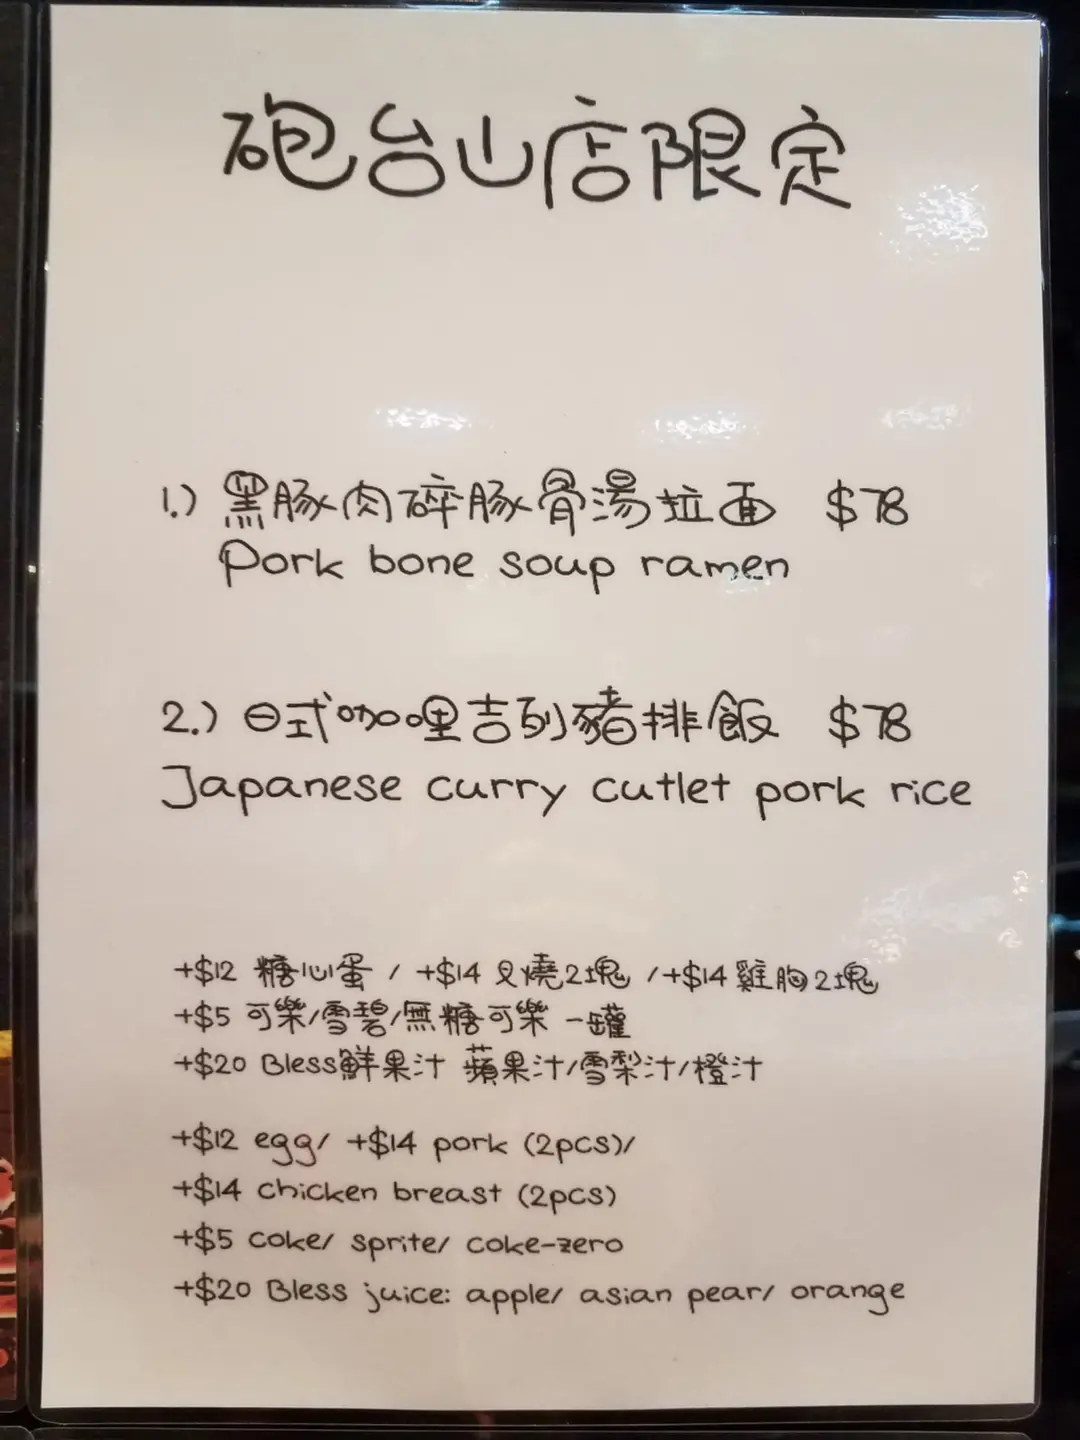 砲台山店限定
1.) 黑豚肉碎豚骨湯拉面 $78
Pork bone soup ramen
2.) 日式咖哩吉列豬排飯 $78
Japanese curry cutlet pork rice
+$12 糖心蛋 / +$14 叉燒2塊 /+$14 雞胸2塊
+$5 可樂/雪碧/無糖可樂 一罐
+$20 Bless鮮果汁 蘋果汁/雪梨汁/橙汁
+$12 egg/ +$14 pork (2pcs)/
+$14 chicken breast (2pcs)
+$5 coke/ sprite/ coke-zero
+$20 Bless juice: apple/ asian pear/ orange